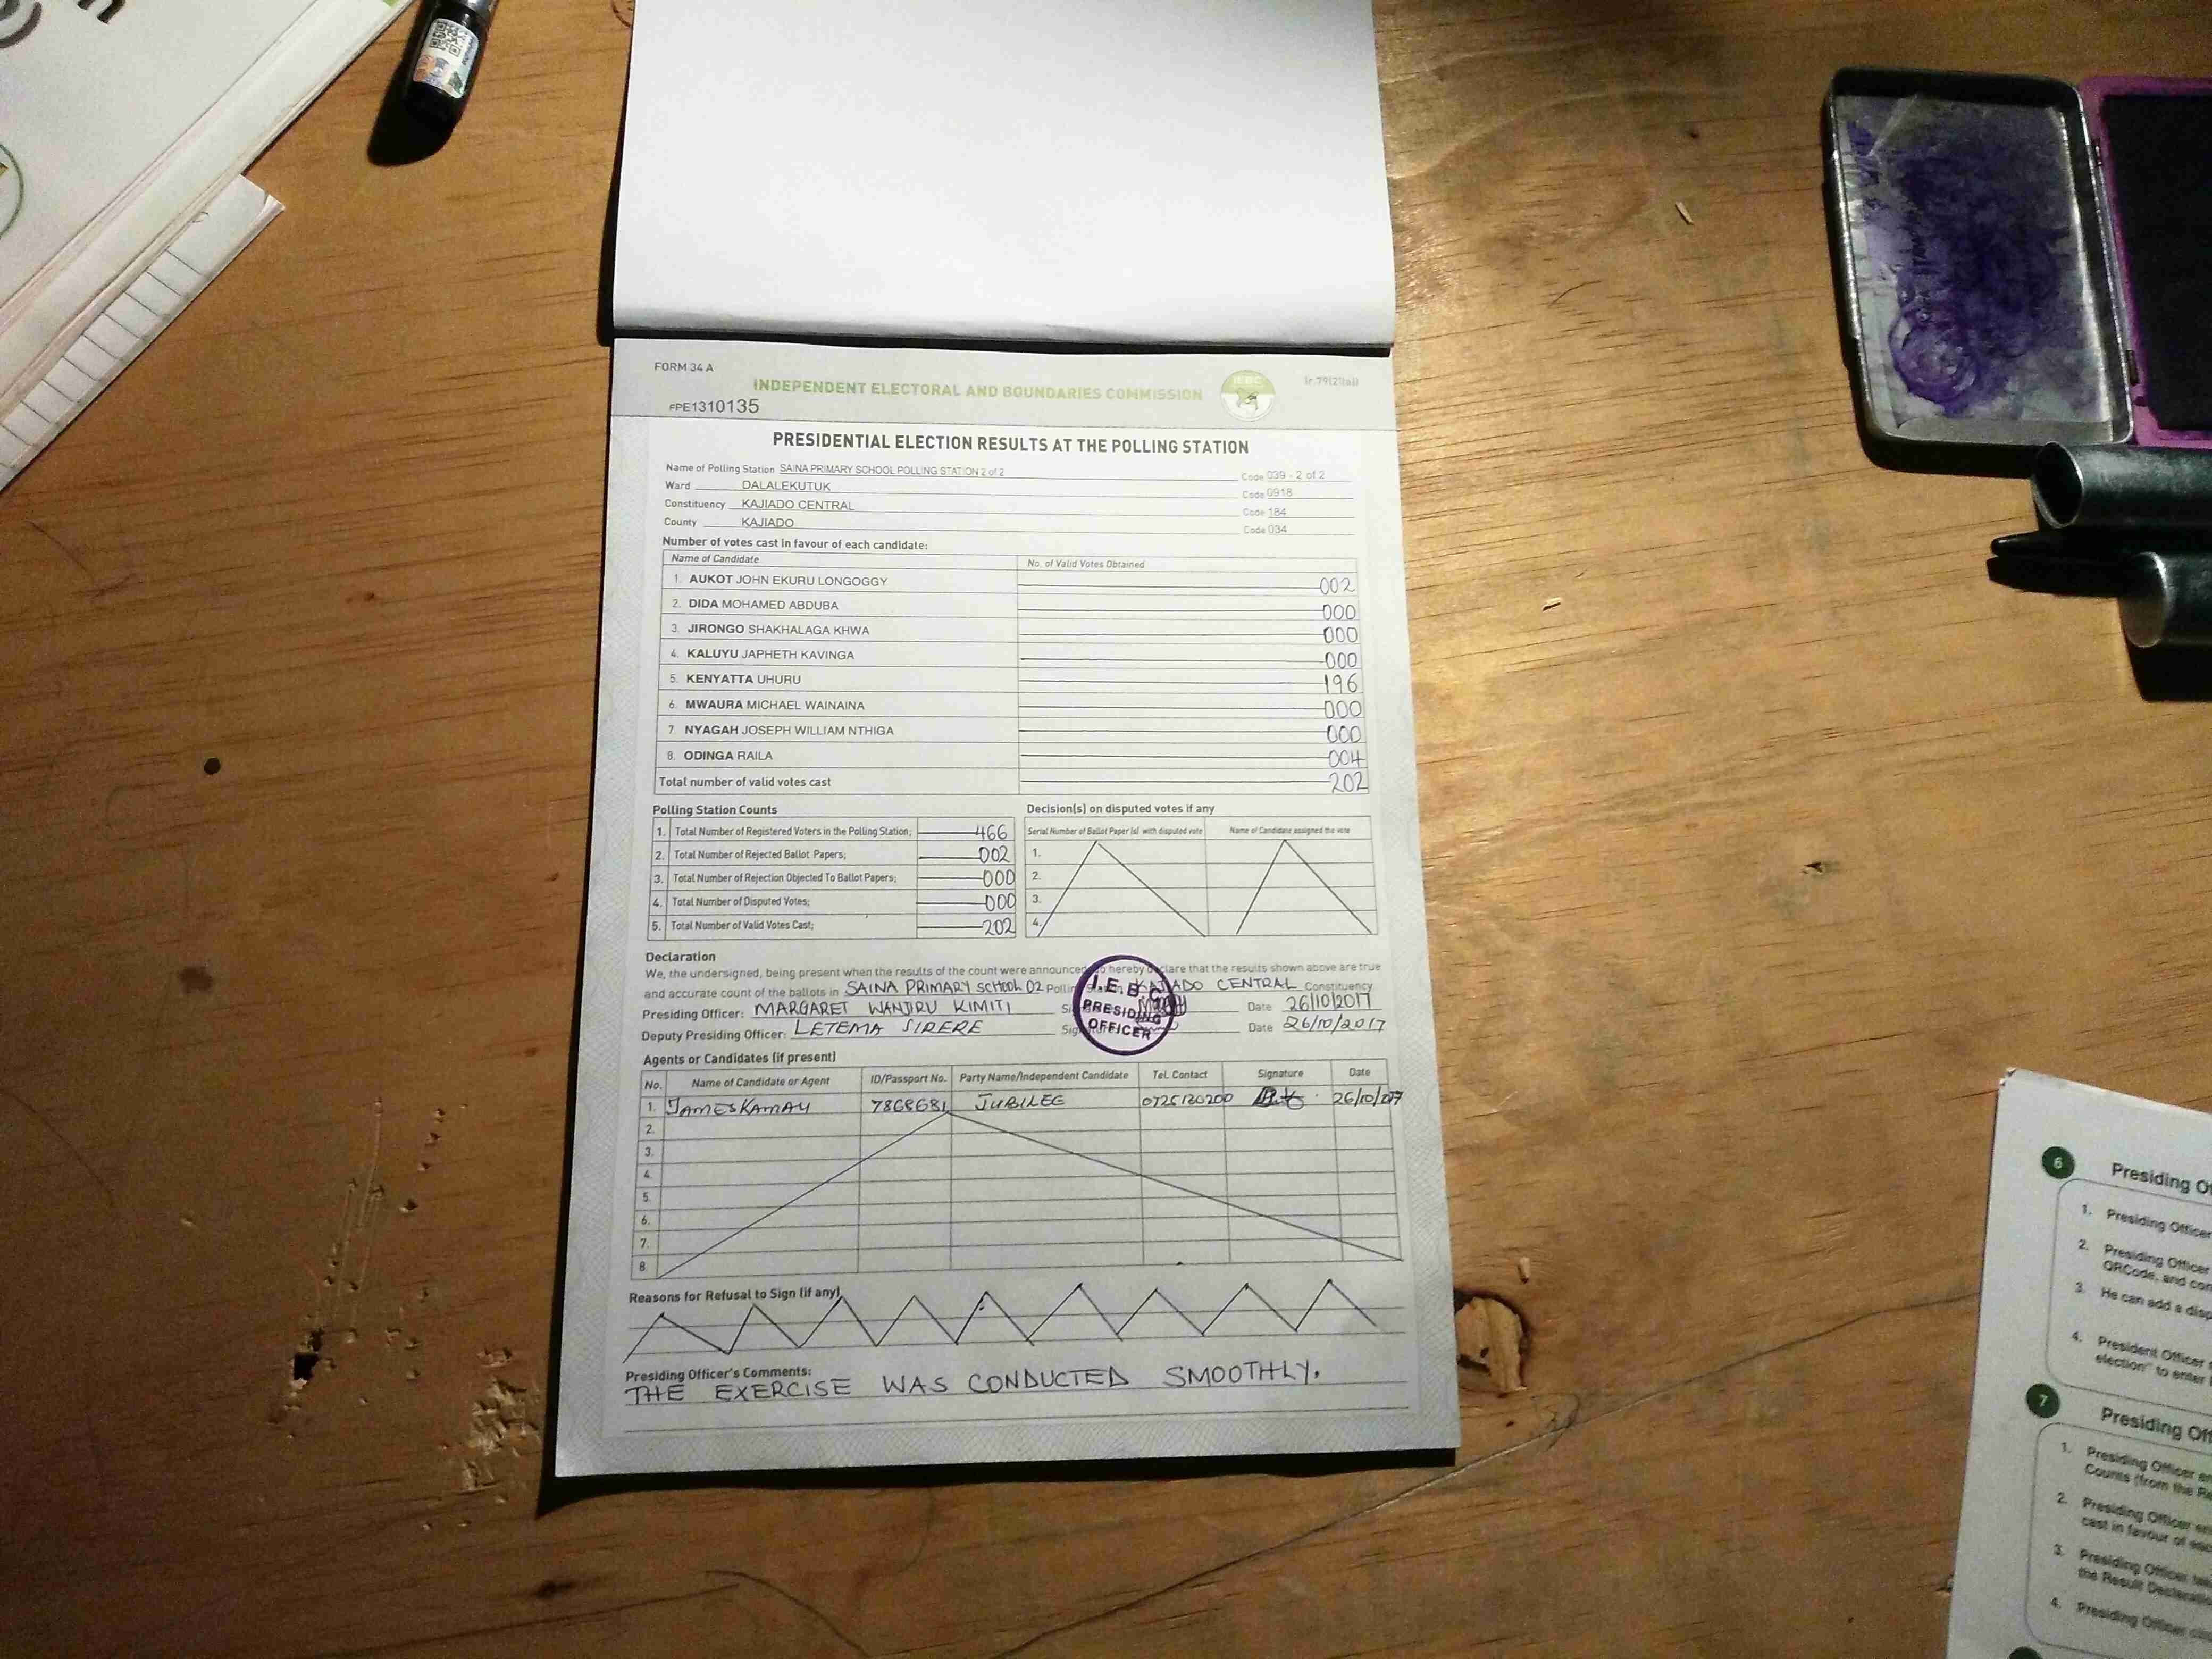 FORM 34 A
INDEPENDENT ELECTORAL AND BOUNDARIES COMMISSION
IEBC
(r.79(2)(a))
FPE1310135
PRESIDENTIAL ELECTION RESULTS AT THE POLLING STATION
Name of Polling Station SAINA PRIMARY SCHOOL POLLING STATION 2 of 2 Code 039 - 2 of 2
Ward DALALEKUTUK Code 0918
Constituency KAJIADO CENTRAL Code 184
County KAJIADO Code 034
Number of votes cast in favour of each candidate:
Name of Candidate No. of Valid Votes Obtained
1. AUKOT JOHN EKURU LONGOGGY 002
2. DIDA MOHAMED ABDUBA 000
3. JIRONGO SHAKHALAGA KHWA 000
4. KALUYU JAPHETH KAVINGA 000
5. KENYATTA UHURU 196
6. MWAURA MICHAEL WAINAINA 000
7. NYAGAH JOSEPH WILLIAM NTHIGA 000
8. ODINGA RAILA 004
Total number of valid votes cast 202
Polling Station Counts
1. Total Number of Registered Voters in the Polling Station; 466
2. Total Number of Rejected Ballot Papers; 002
3. Total Number of Rejection Objected To Ballot Papers; 000
4. Total Number of Disputed Votes; 000
5. Total Number of Valid Votes Cast; 202
Decision(s) on disputed votes if any
Serial Number of Ballot Paper (s) with disputed vote Name of Candidate assigned the vote
1.
2.
3.
4.
Declaration
We, the undersigned, being present when the results of the count were announced, do hereby declare that the results shown above are true
and accurate count of the ballots in SAINA PRIMARY SCHOOL 02 KAJIADO CENTRAL Constituency
Presiding Officer: MARGARET WANJIRU KIMITI Date 26/10/2017
Deputy Presiding Officer: LETEMA SIRERE Date 26/10/2017
I.E.B.C
PRESIDING
OFFICER
Agents or Candidates (if present)
No. Name of Candidate or Agent ID/Passport No. Party Name/Independent Candidate Tel. Contact Signature Date
1. JAMES KAMAU 7868681 JUBILEE 26/10/2017
2.
3.
4.
5.
6.
7.
8
Reasons for Refusal to Sign (if any)
Presiding Officer's Comments:
THE EXERCISE WAS CONDUCTED SMOOTHLY.
6 Presiding
1. Presiding Officer
2. Presiding Officer
QRCode, and
3. He can add a
4. President Officer
election" to enter
7 Presiding
1. Presiding Officer
Counts (from the
2. Presiding Officer
cast in favour of
3. Presiding Officer
the Result
4. Presiding Officer